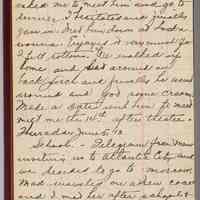 asked me to meet him and go to
service. I hesitated and finally
gave in. Met him down at
woman. Enjoyed it very much for
I felt rotten. We walked up
home and had around and
back porch and finally he went
around and got some cream.
Made a date and him to meet
met me the 14th after theatre.
Thursday June 5-'13.
School. - Telegram from man
inviting us to Atlantic City and
we decided to go to-morrow.
Mad me a new coat
and I met her after school &